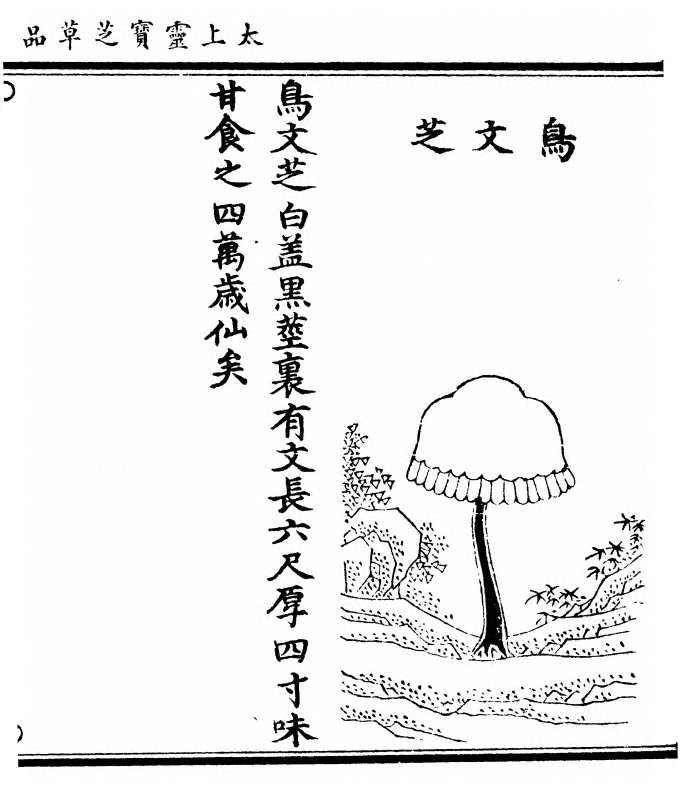 太上靈寶芝草品
鳥文芝
鳥文芝白盖黒莖裏有文長六尺厚四寸味
甘食之四萬歳仙矣